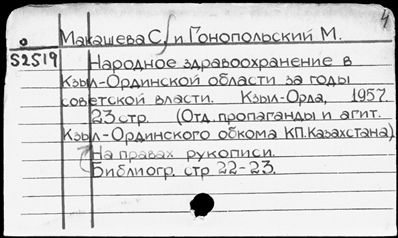 4
Макашева С. и Гонопольский М.
S2519 Народное здравоохранение в
Кзыл-Ординской области за годы
советской власти. Кзыл-Орда, 1957.
23 стр. (Отд. пропаганды и агит.
Кзыл-Ординского обкома КП.Казахстана)
На правах рукописи.
Библиогр. стр 22-23.